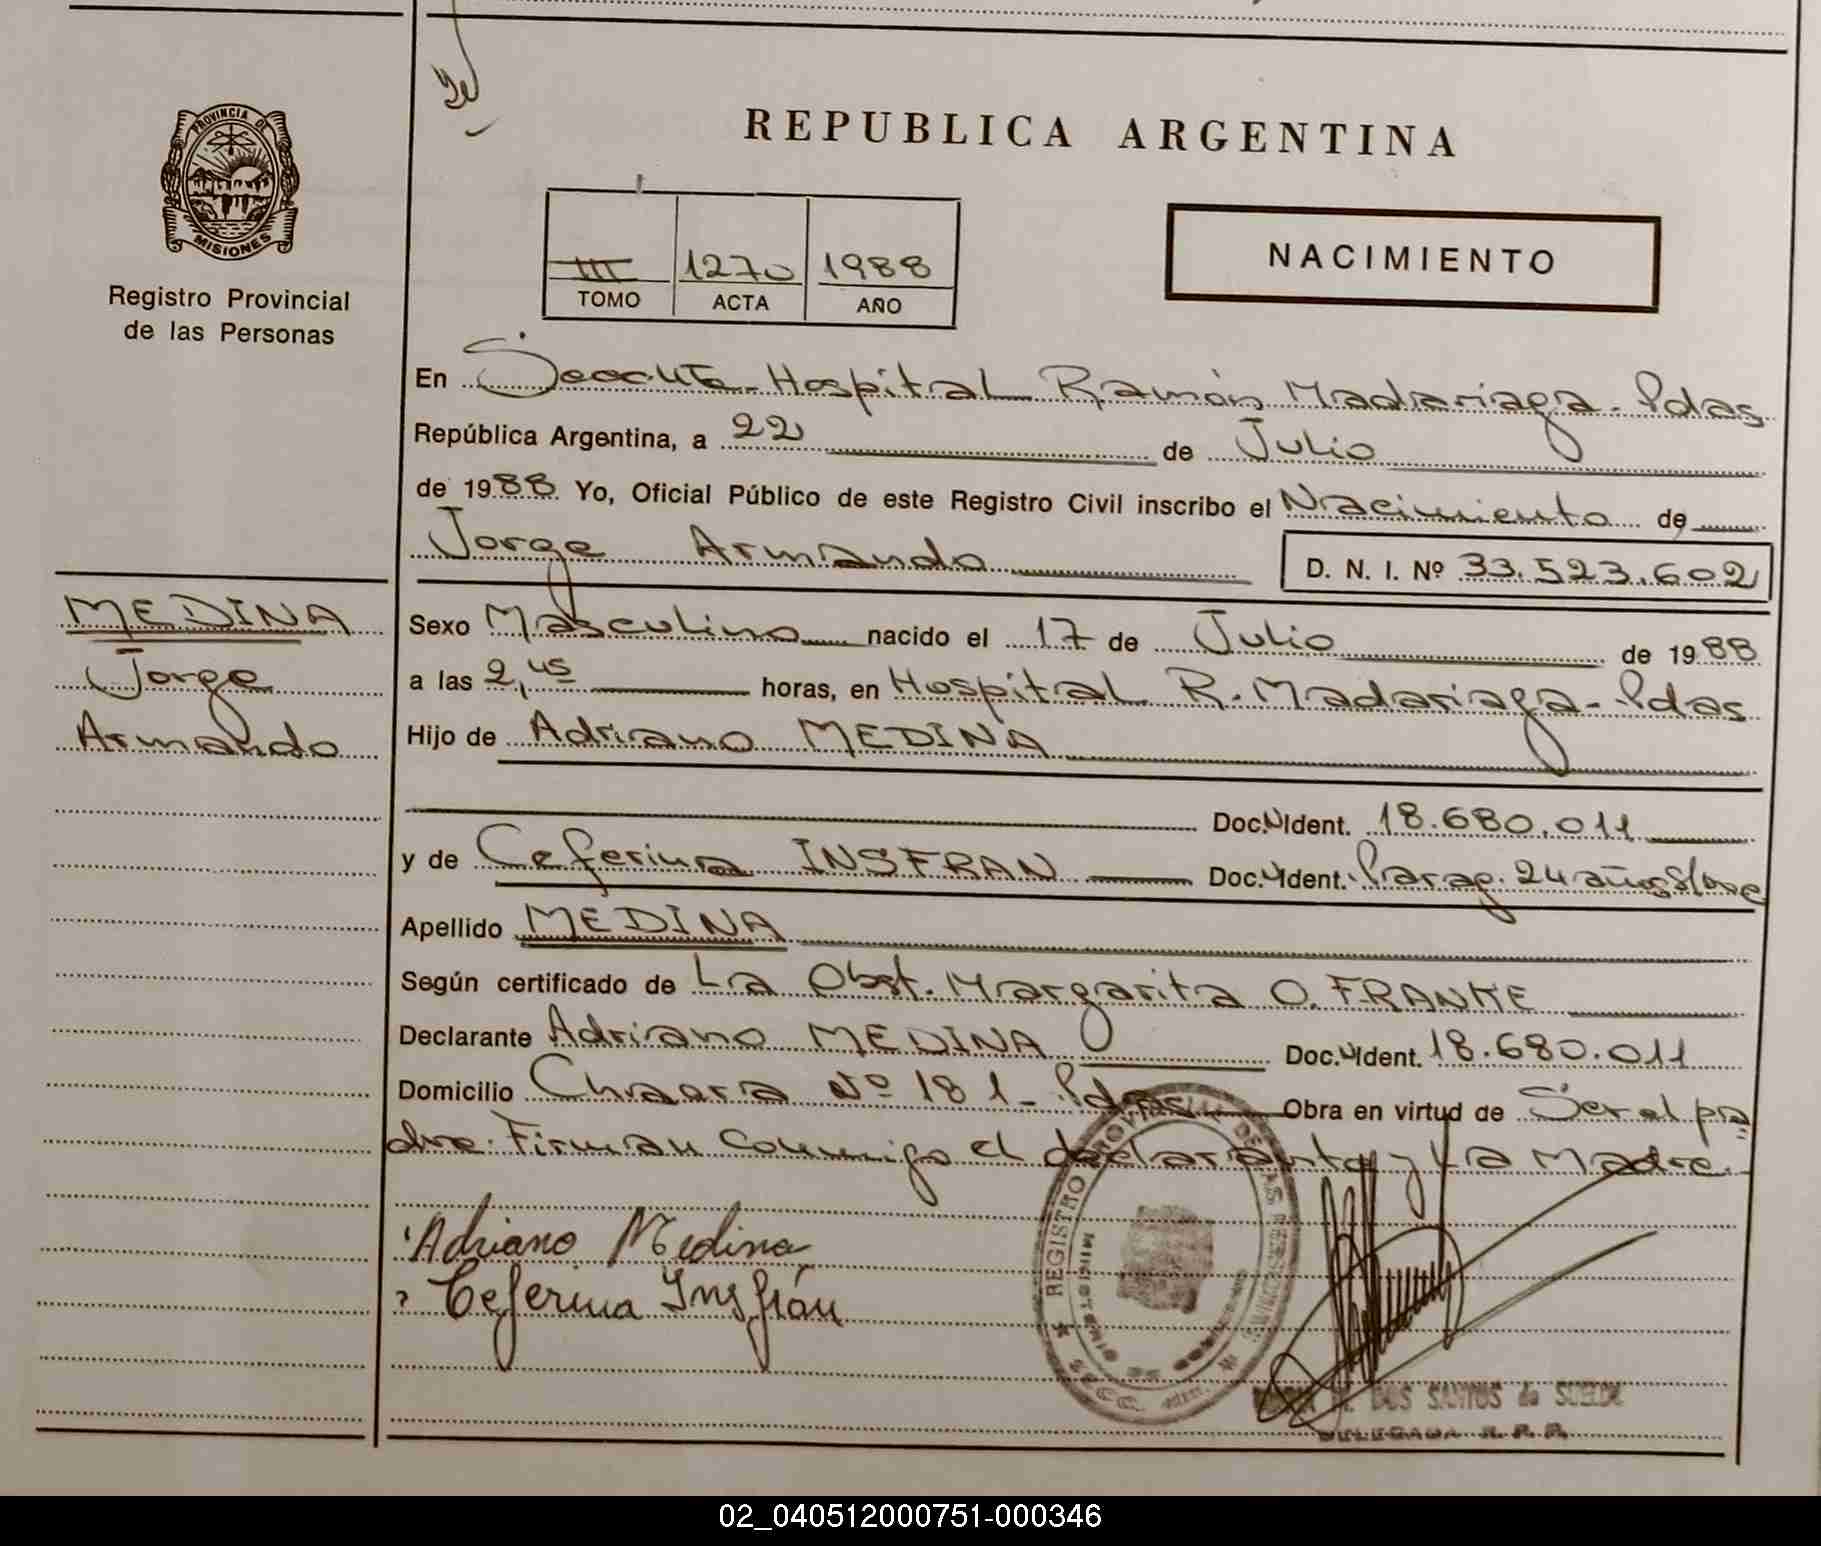 PROVINCIA DE
MISIONES
Registro Provincial
de las Personas
REPUBLICA ARGENTINA
III 1270 1988
TOMO ACTA AÑO
NACIMIENTO
En Seccute. Hospital Ramón Madariaga. Pdas.
República Argentina, a 22 de Julio
de 1988 Yo, Oficial Público de este Registro Civil inscribo el Nacimiento de
Jorge Armando D. N. I. Nº 33.523.602
MEDINA
Jorge
Armando
Sexo Masculino nacido el 17 de Julio de 1988
a las 2,45 horas, en Hospital R. Madariaga - Pdas
Hijo de Adriano MEDINA
Doc. Ident. 18.680.011
y de Ceferina INSFRAN Doc. Ident. Parag. 24 años
Apellido MEDINA
Según certificado de La Obst. Margarita O. FRANKE
Declarante Adriano MEDINA Doc. Ident. 18.680.011
Domicilio Chacra Nº 181 - Pdas Obra en virtud de Ser el pa
dre. Firman conmigo el declarante y La Madre.
Adriano Medina
Ceferina Insfrán
REGISTRO PROVINCIAL DE LAS PERSONAS
MINISTERIO DE
DOS SANTOS de
DELEGADA R. P. P.
02_040512000751-000346